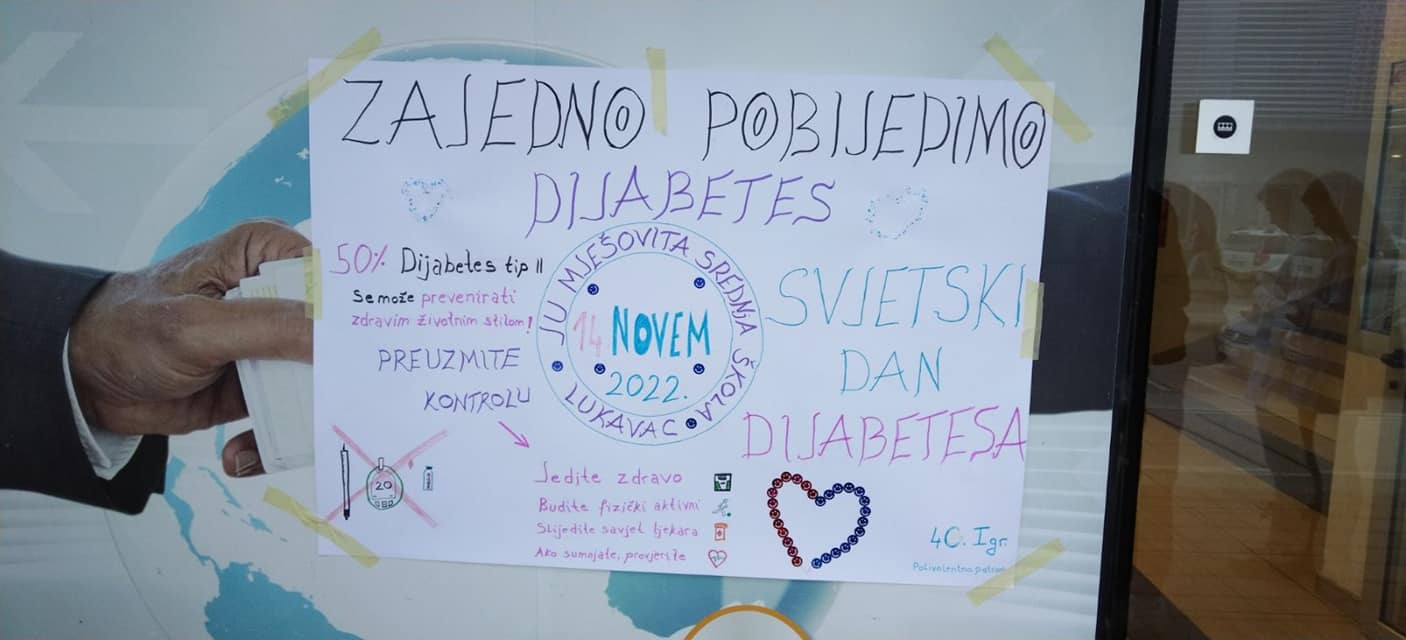 ZAJEDNO POBIJEDIMO
DIJABETES
50% Dijabetes tip II
Se može prevenirati
zdravim životnim stilom!
PREUZMITE
KONTROLU
20
JU MJEŠOVITA SREDNJA ŠKOLA
LUKAVAC
14 NOVEM
2022.
SVJETSKI
DAN
DIJABETESA
Jedite zdravo
Budite fizički aktivni
Slijedite savjet ljekara
Ako sumnjate, provjerite
4C. I gr.